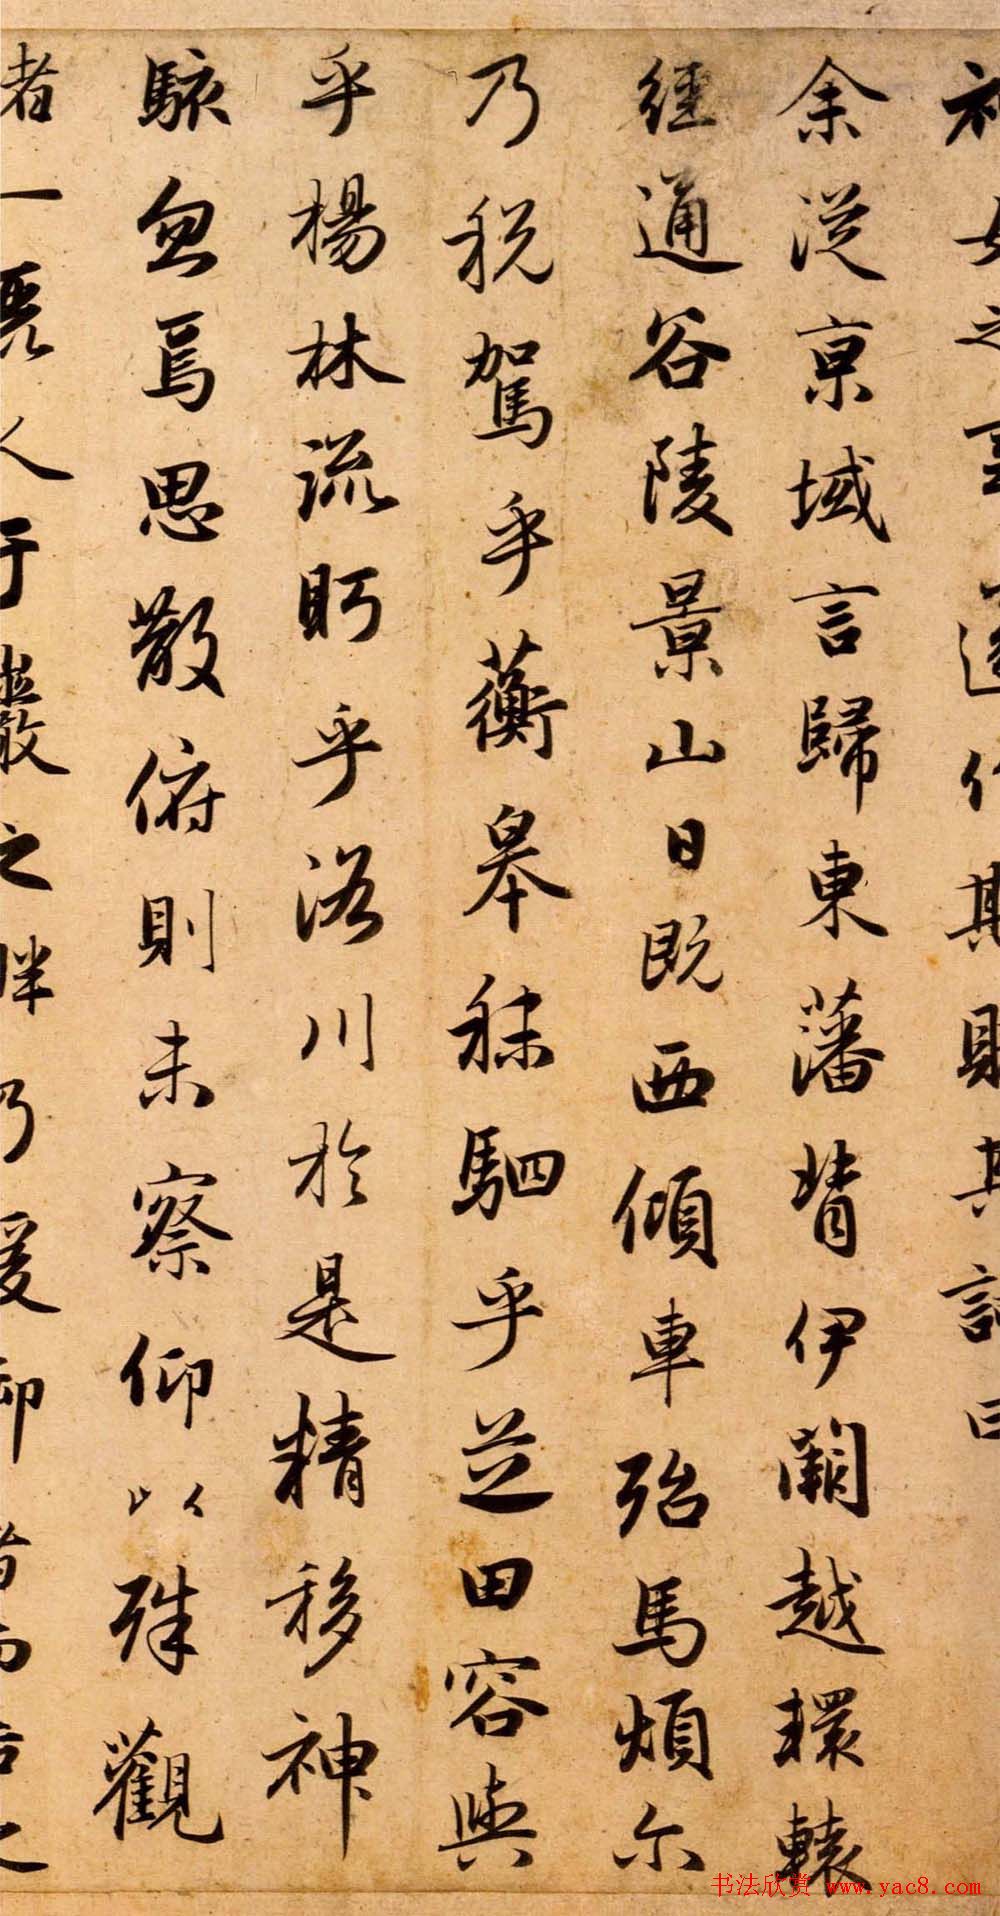 神女之事遂作斯賦其詞曰
余從京域言歸東藩背伊闕越轘轅
經通谷陵景山日既西傾車殆馬煩尔
乃税駕乎蘅皋秣駟乎芝田容與
乎楊林流眄乎洛川於是精移神
駭忽焉思散俯則未察仰以殊觀
一麗人于巖之畔乃援御者而告之
书法欣赏 www.yac8.com